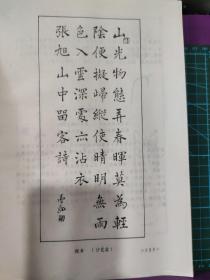 山光物態弄春暉莫為輕
陰便擬歸縱使晴明無雨
色入雲深處亦沾衣
張旭山中留客詩